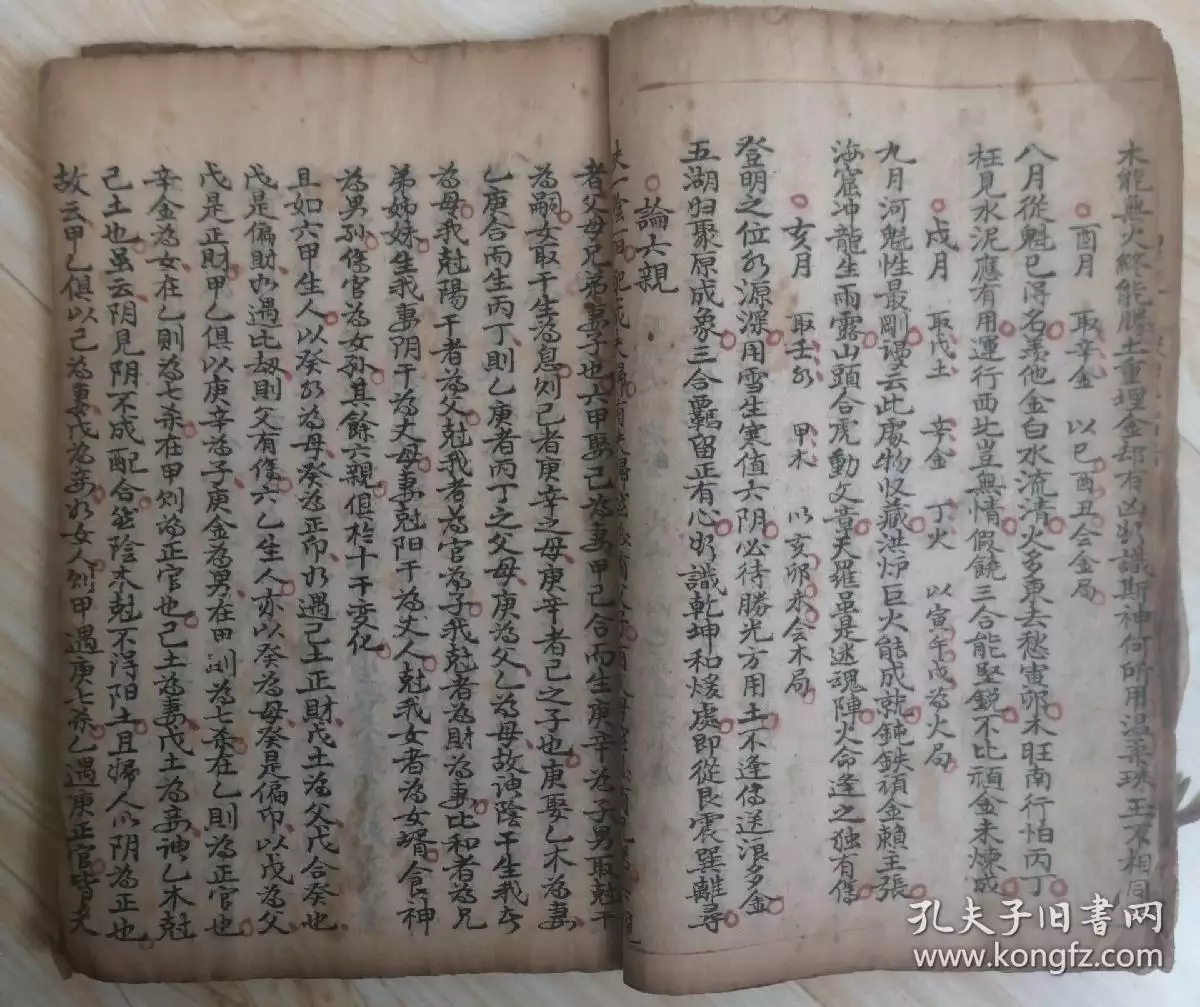 木能無火終能勝土重埋金却有凶
斯神何所用温柔珠玉不相同
酉月 取辛金 以巳酉丑会金局
八月從魁已得名羡他金白水流清火多東去愁寅卯木旺南行怕丙丁
柱見水泥應有用運行西北豈無情假饒三合能堅銳不比頑金未煉成
戌月 取戊土 辛金 丁火 以寅午戌為火局
九月河魁性最剛謾云此處物收藏洪炉巨火能成就鈍鉄頑金賴主張
海窟冲龍生雨露山頭合虎動文章天羅虽是迷魂陣火命逢之独有傷
亥月 取壬水 甲木 以亥卯未会木局
登明之位水源深用雪生寒值六阴必待勝光方用土不逢傳送浪多金
五湖归聚原成象三合羁留正有心欲識乾坤和煖處即從艮震巽離尋
論六親
者父母兄弟妻子也六甲娶己為妻甲己合而生庚辛為子男取尅干
為嗣女取干生為息则己者庚辛之母庚辛者己之子也庚娶乙木為妻
乙庚合而生丙丁則乙庚者丙丁之父母庚為父乙為母故陰干生我者
為母我尅陽干者為父尅我者為官為子我尅者為財為妻比和者為兄
弟姊妹生我妻阴干為丈母妻尅阳干為丈人尅我女者為女壻食神
為男孙傷官為女孙其餘六親俱於十干变化
且如六甲生人以癸水為母癸為正印如遇己土正財戊土為父戊合癸也
戊是偏財如遇比劫則父有傷六乙生人亦以癸為母癸是偏印以戊為父
戊是正財甲乙俱以庚辛為子庚金為男在甲则為七杀在乙則為正官也
辛金為女在乙則為七杀在甲则為正官也己土為妻戊土為妾乙木尅
己土也虽云阴見阴不成配合陰木尅不淂阳土且婦人以阴為正也
故云甲乙俱以己為妻戊為妾如女人则甲遇庚七杀乙遇庚正官皆夫
孔夫子旧书网
www.kongfz.com